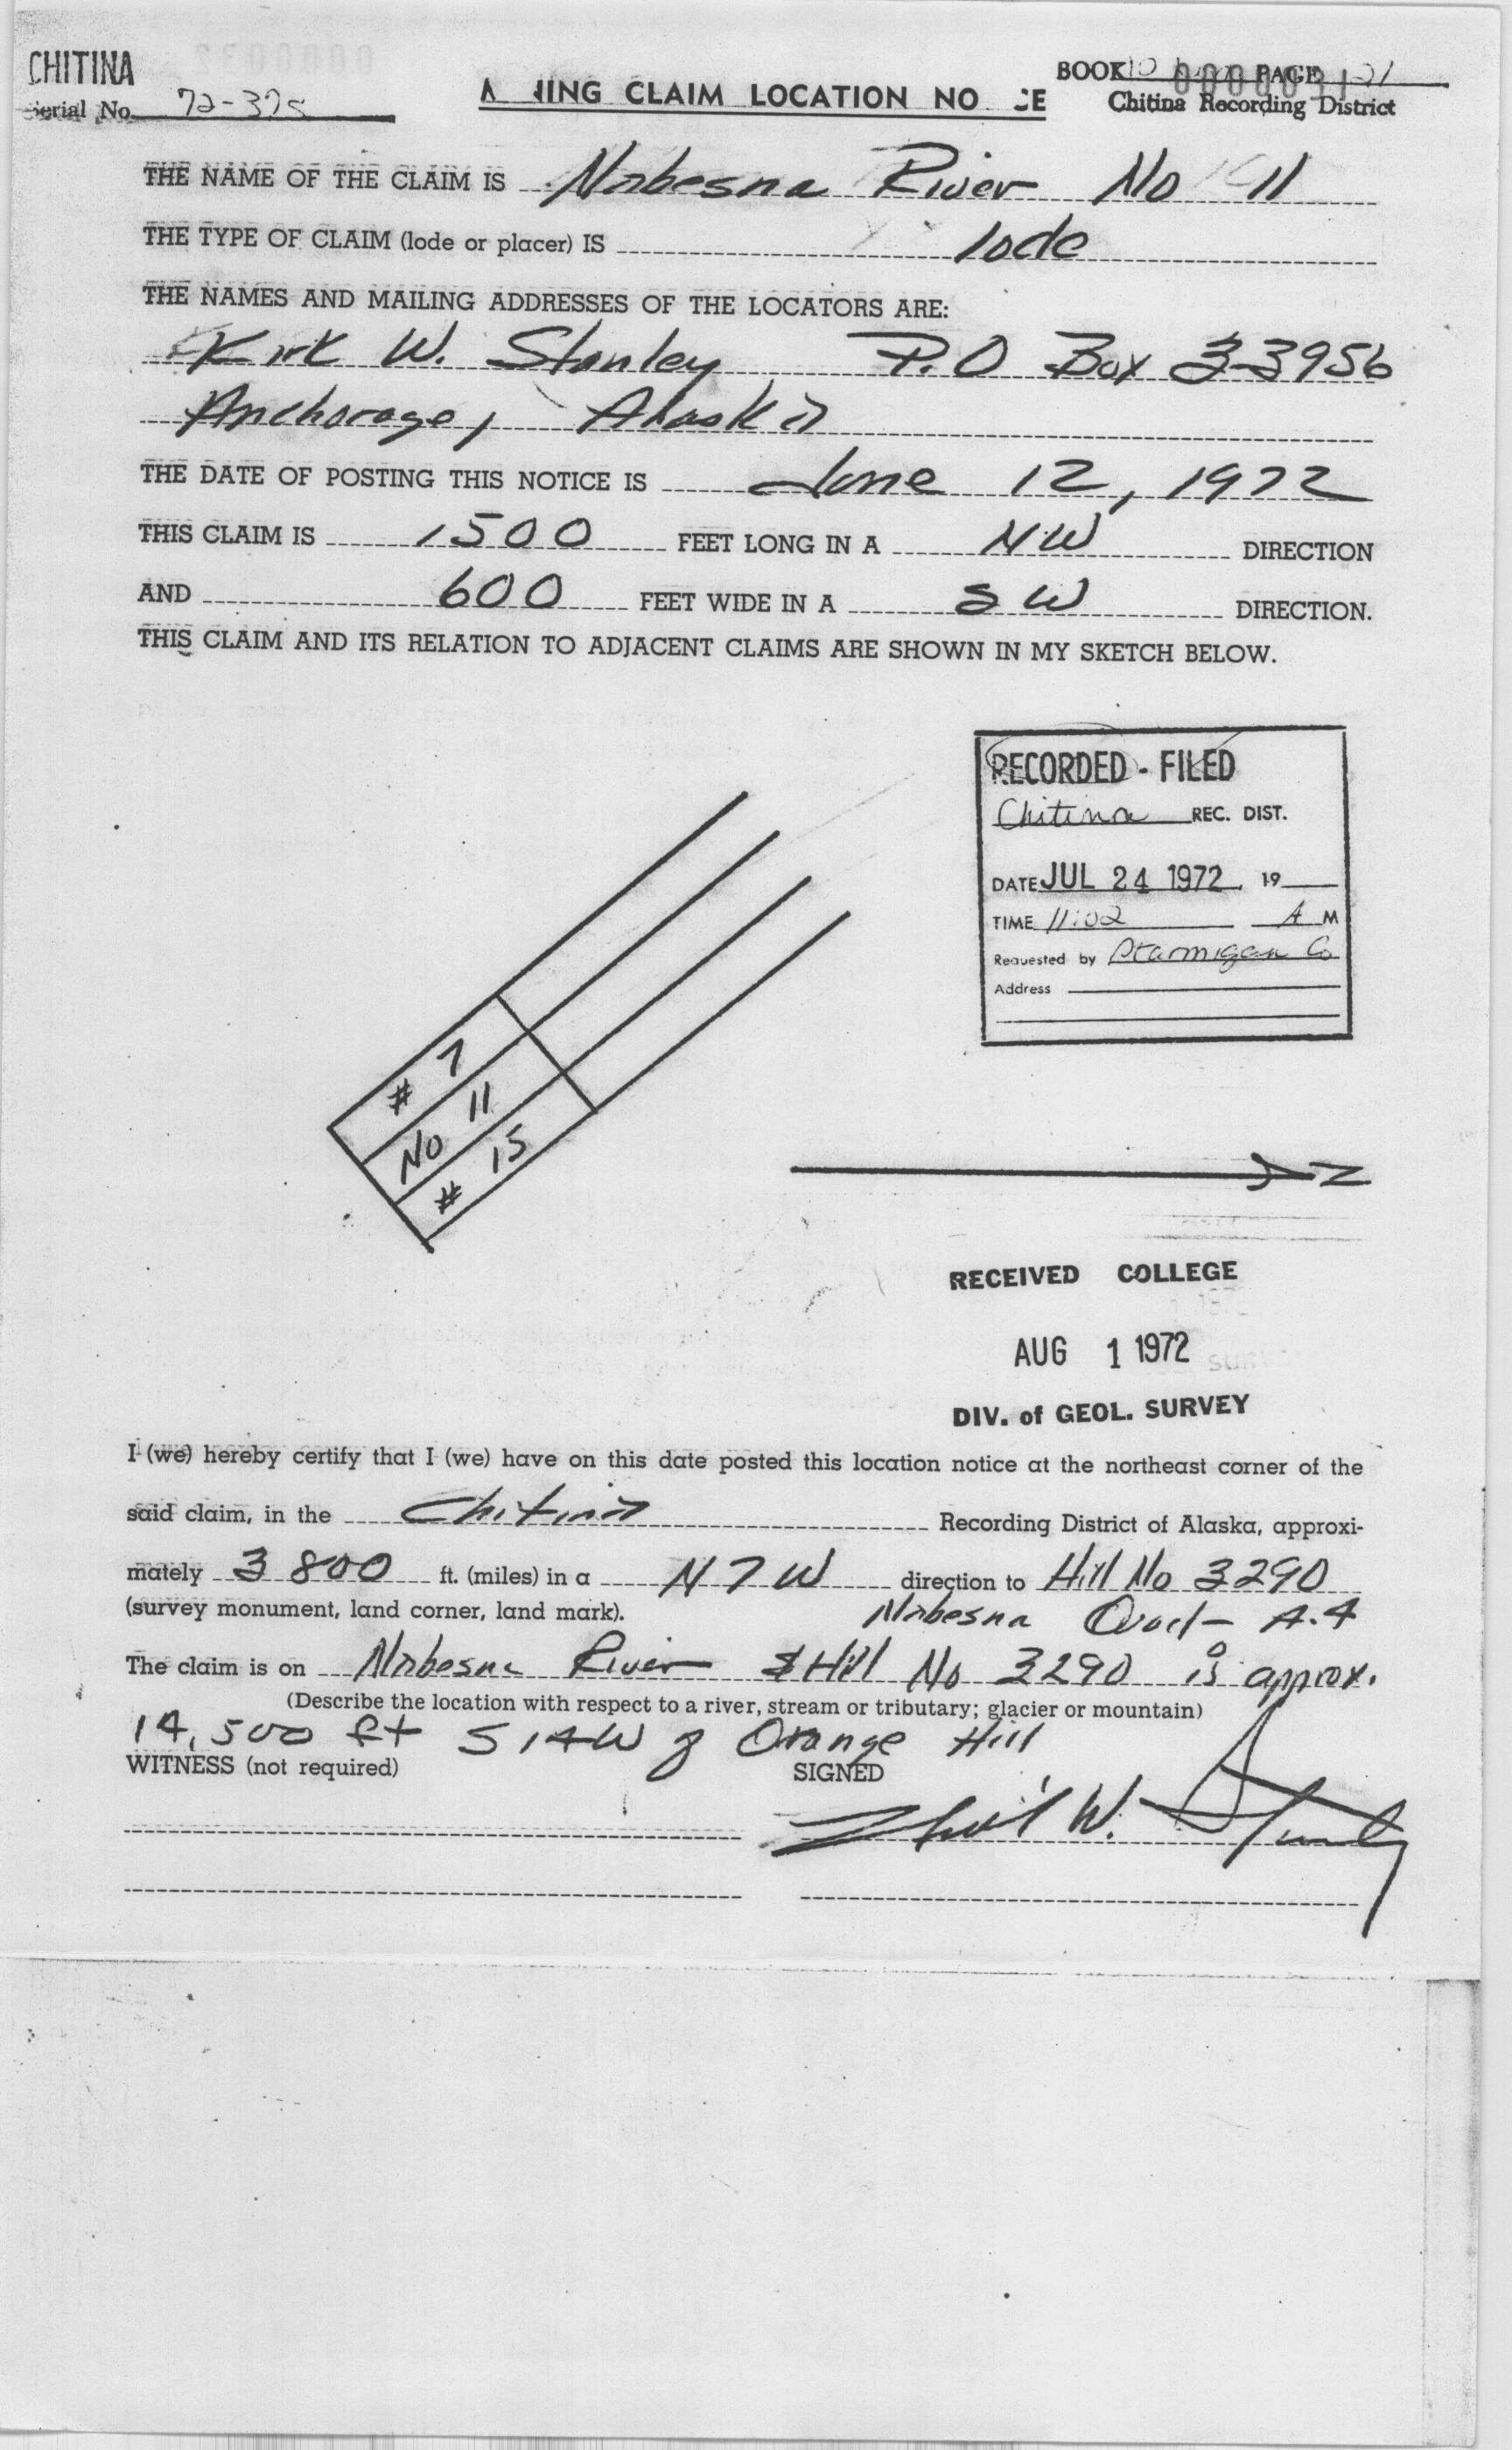 CHITINA
Serial No. 72-375
MINING CLAIM LOCATION NOTICE
BOOK 10 PAGE 121
Chitina Recording District
THE NAME OF THE CLAIM IS Nabesna River No 11
THE TYPE OF CLAIM (lode or placer) IS lode
THE NAMES AND MAILING ADDRESSES OF THE LOCATORS ARE:
Kirk W. Stanley P.O Box 33956
Anchorage, Alaska
THE DATE OF POSTING THIS NOTICE IS June 12, 1972
THIS CLAIM IS 1500 FEET LONG IN A NW DIRECTION
AND 600 FEET WIDE IN A SW DIRECTION.
THIS CLAIM AND ITS RELATION TO ADJACENT CLAIMS ARE SHOWN IN MY SKETCH BELOW.
RECORDED - FILED
Chitina REC. DIST.
DATE JUL 24 1972, 19
TIME 11:02 A M
Requested by Ptarmigan Co
Address
# 7
No 11
# 15
N
RECEIVED COLLEGE
AUG 1 1972
DIV. of GEOL. SURVEY
I (we) hereby certify that I (we) have on this date posted this location notice at the northeast corner of the
said claim, in the Chitina Recording District of Alaska, approxi-
mately 3800 ft. (miles) in a N 7 W direction to Hill No 3290
(survey monument, land corner, land mark). Nabesna Quad - A-4
The claim is on Nabesna River & Hill No 3290 is approx.
(Describe the location with respect to a river, stream or tributary; glacier or mountain)
14,500 ft S 14 W of Orange Hill
WITNESS (not required) SIGNED
Kirk W. Stanley